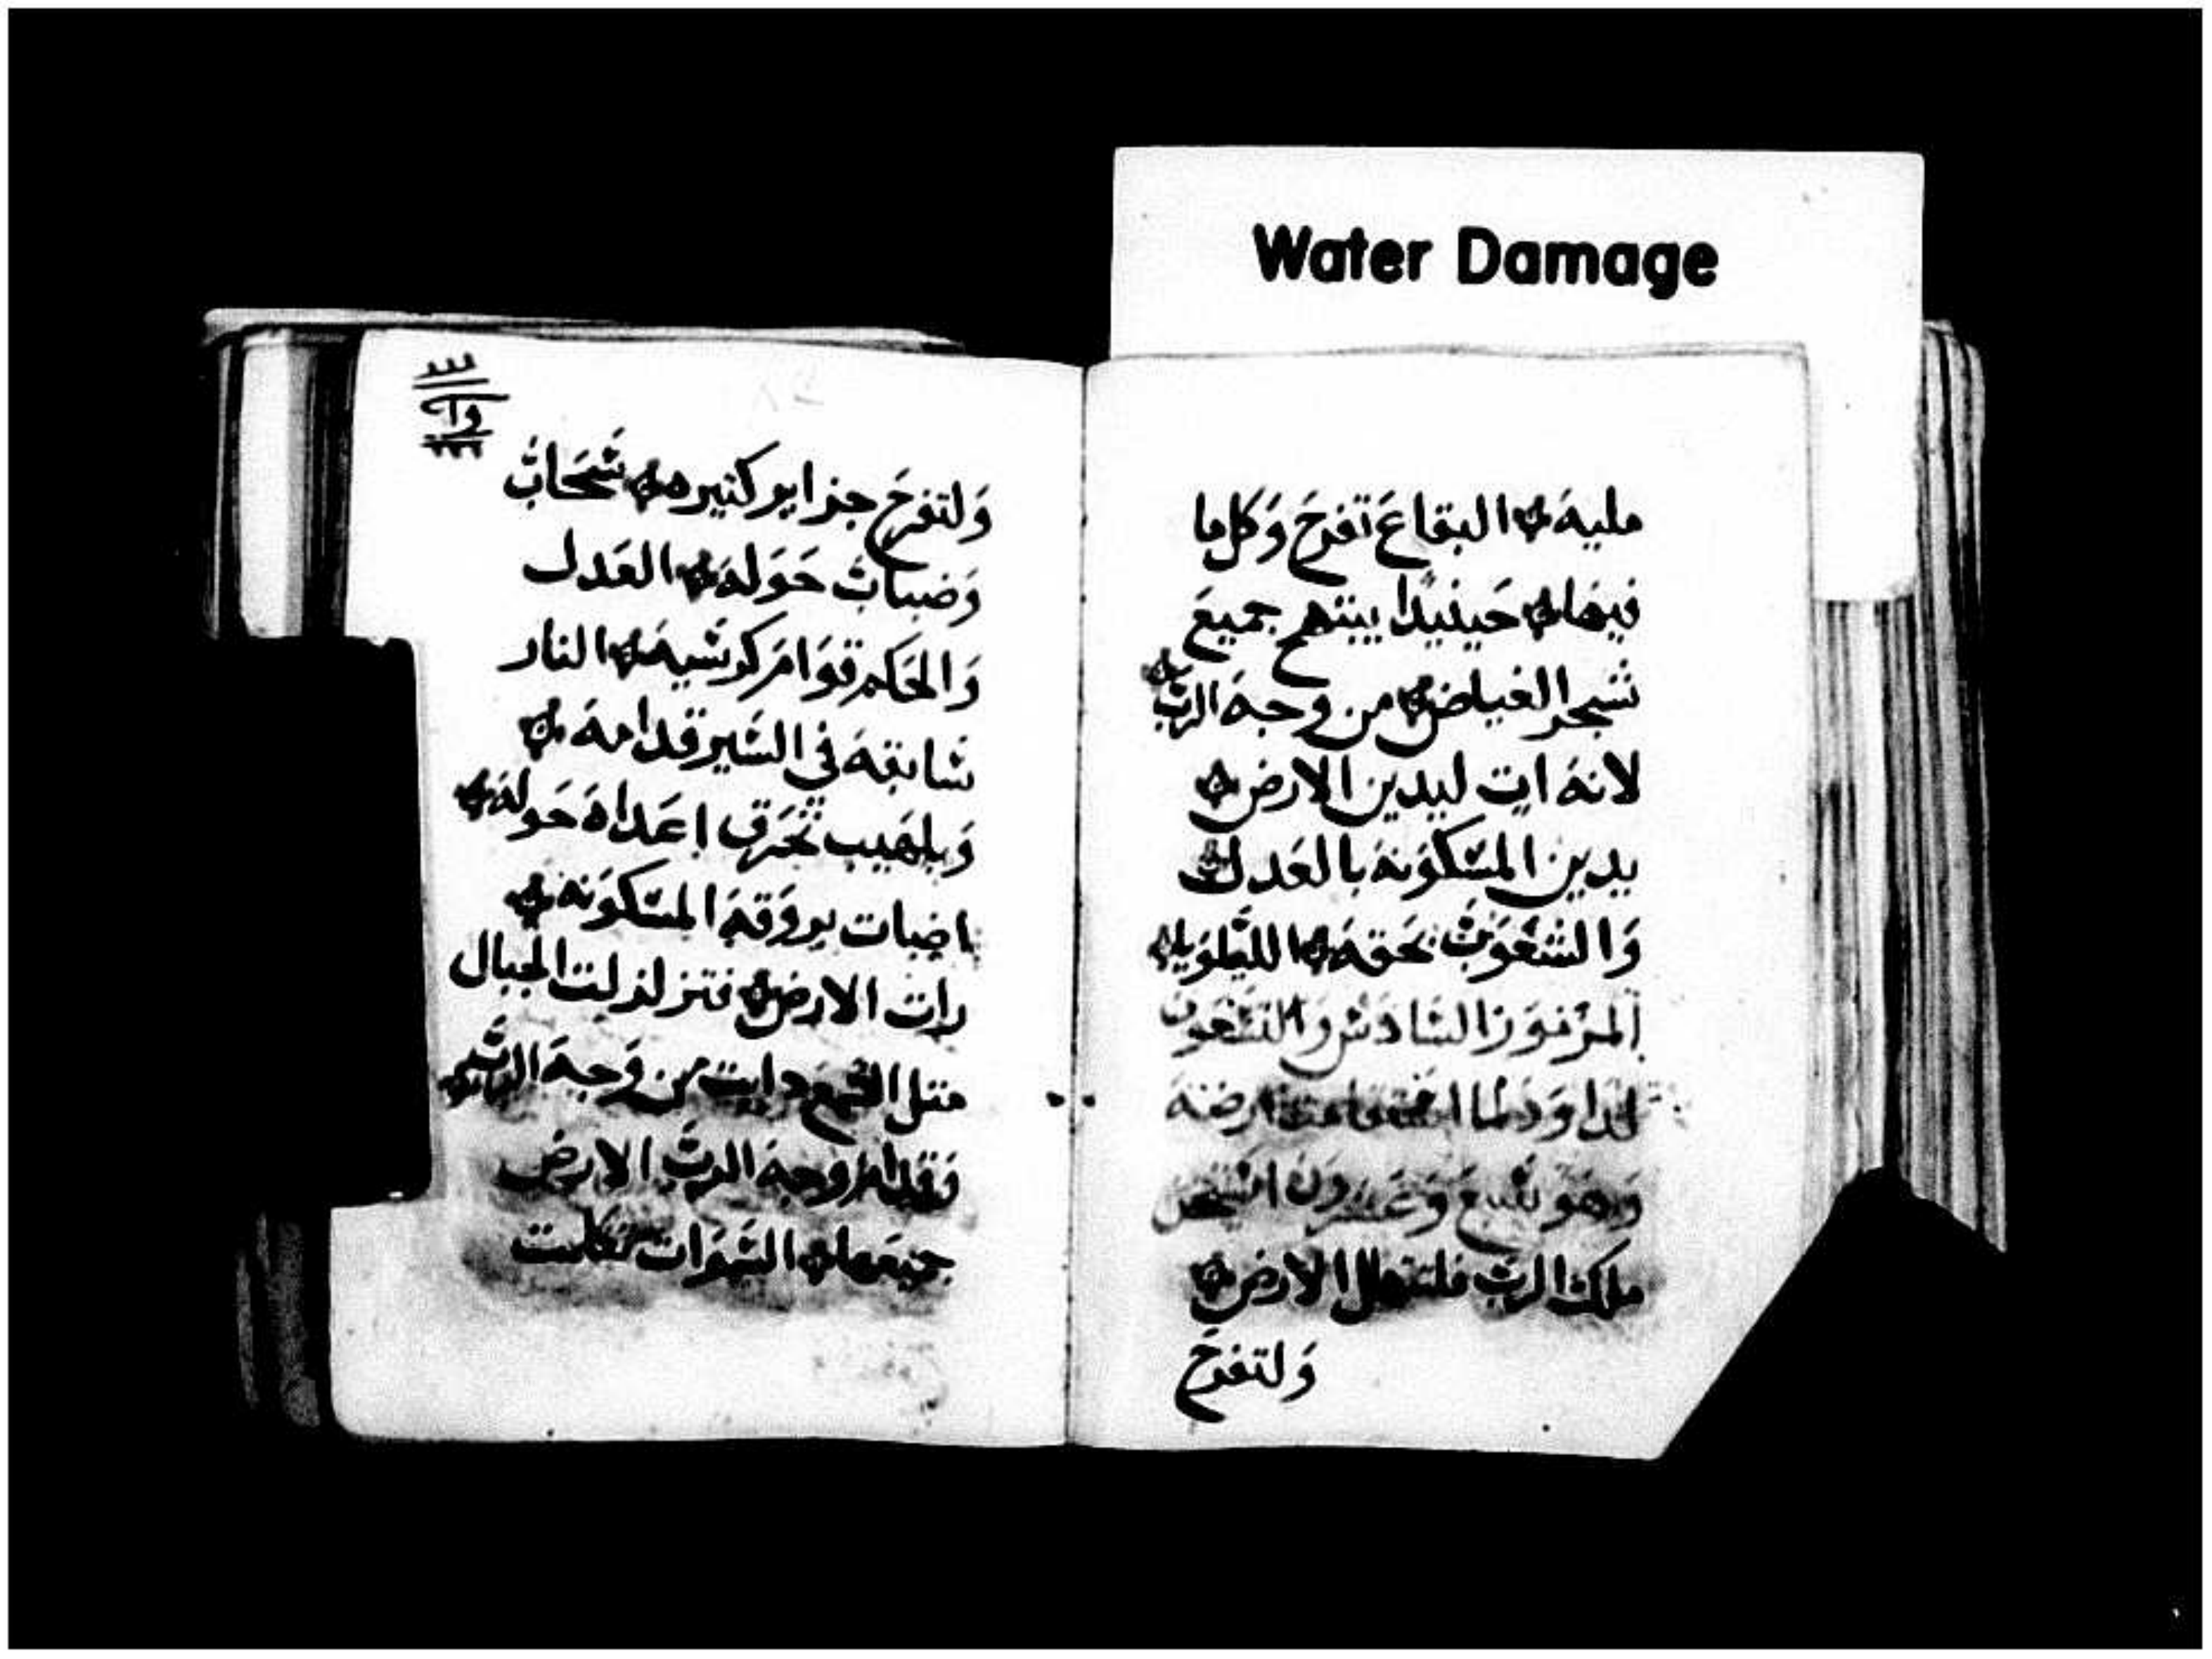 Water Damage
مليه البقاع تفرح وكلما
فيها حينيدا يبتهج جميع
شجر الغياض من وجه الرب
لانه ات ليدين الارض
يدين المسكونه بالعدل
والشعوب بحقه الليلويا
المزمور السادس والتسعون
لداود لما ارضه
وهو سبع وعشرون
ملك الرب فلتتهلل الارض
ولتفرح
ولتفرح جزاير كتيره سحاب
وضباب حوله العدل
والحكم قوام كرسيه النار
سابقه في السير قدامه
وبلهيب تحرق اعداه حوله
اضات بروقه المسكونه
رات الارض فتزلزلت الجبال
متل الشمع دابت من وجه الرب
قدام وجه الرب الارض
جميعها السموات تكلمت